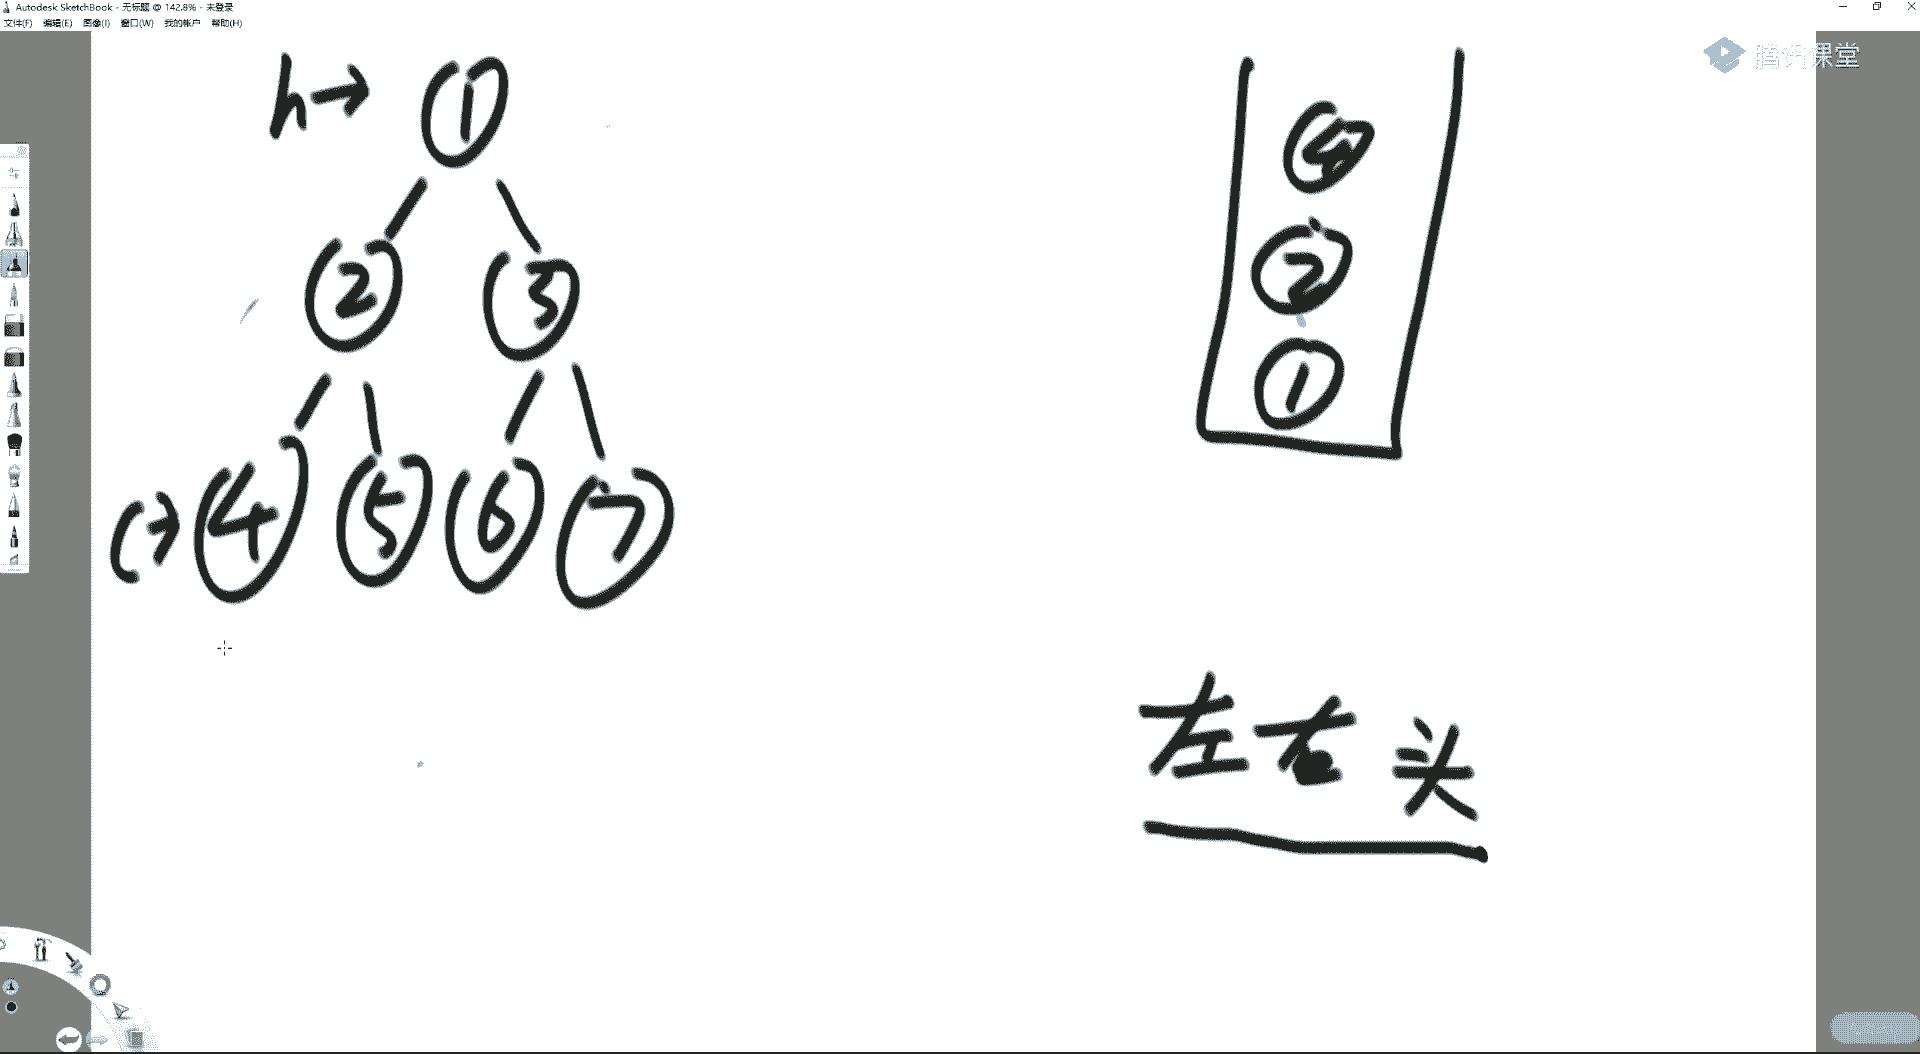 Autodesk SketchBook - 无标题 @ 142.8% - 未登录
文件(F) 编辑(E) 图像(I) 窗口(W) 我的帐户 帮助(H)
腾讯课堂
h→ 1
2 3
4 5 6 7
4
2
1
左右头